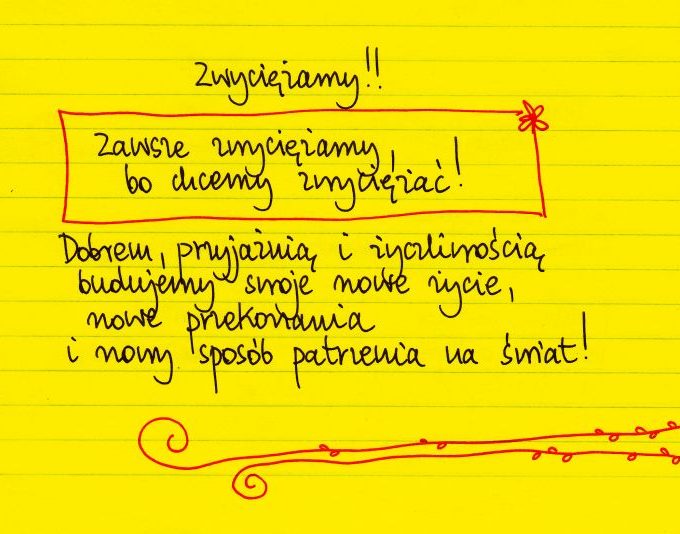 Zwyciężamy!!
Zawsze zwyciężamy,
bo chcemy zwyciężać!
Dobrem, przyjaźnią i życzliwością
budujemy swoje nowe życie,
nowe przekonania
i nowy sposób patrzenia na świat!